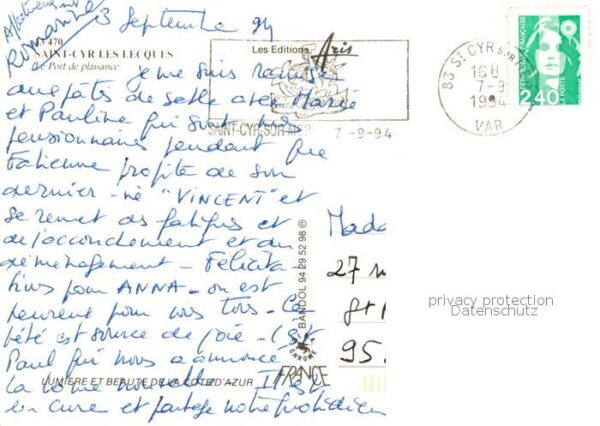 3 Septembre 94
Affectueusement
Romanne
470
SAINT-CYR LES LECQUES
Le Port de plaisance
Les Editions Aris
SAINT-CYR-SUR-MER 7-9-94
83 St CYR sur MER
16 H
7-9
1994
VAR
RÉPUBLIQUE FRANÇAISE
LA POSTE
2,40
je me suis
aux pâtés de sable avec Marie
et Pauline qui sont nos
pensionnaires pendant que
Fabienne profite de son
dernier-né "VINCENT" et
se remet des fatigues et
de l'accouchement et du
déménagement - Félicita-
tions pour ANNA - on est
heureux pour vous tous - Ce
bébé est source de joie - C'est
Paul qui nous a annoncé
la bonne nouvelle Il est
en cure et partage notre quotidien
LUMIERE ET BEAUTE DE LA COTE D'AZUR
BANDOL 94 29 52 98 ©
CHROME
Mada
27
95.
FRANCE
privacy protection
Datenschutz